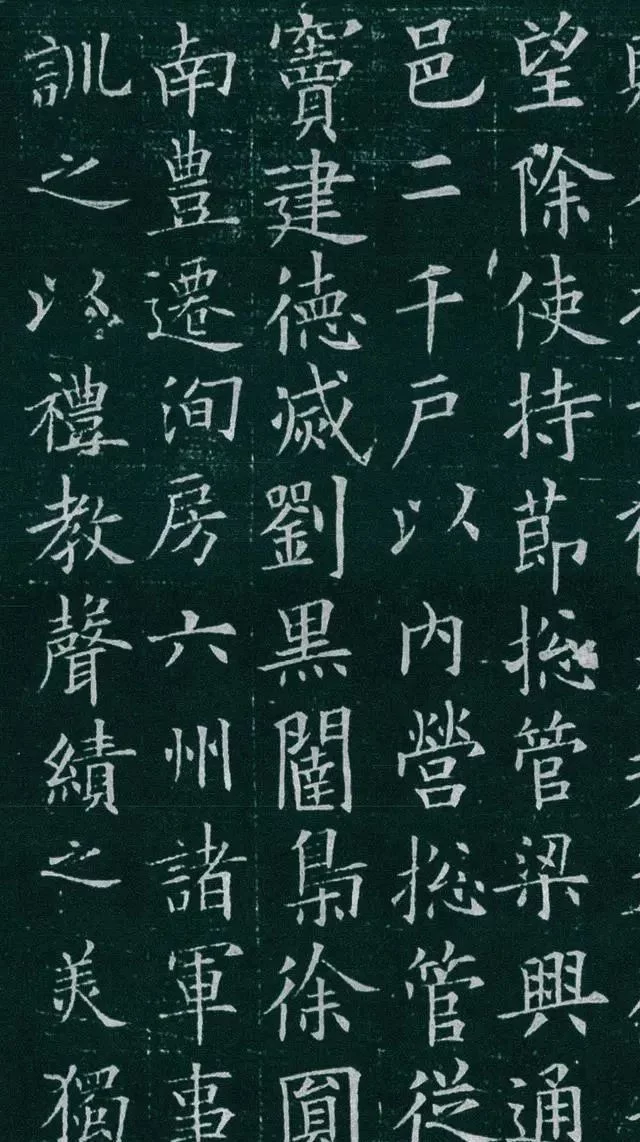 望除使持節摠管梁興通
邑二千戶以內營摠管從
竇建德滅劉黑闥梟徐圎
南豊遷洵房六州諸軍事
訓之以禮教聲績之美獨